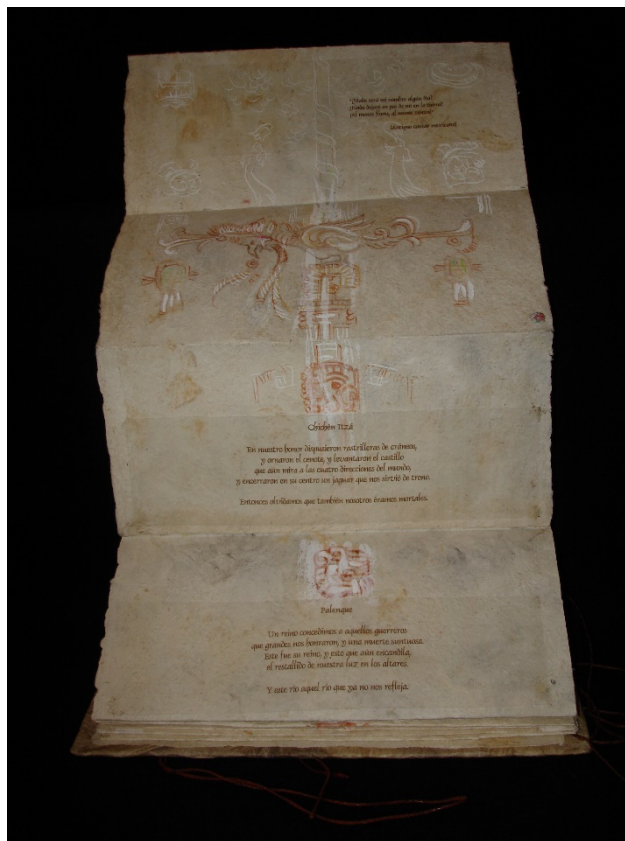 "¿Nada será mi nombre algún día?
¿Nada dejaré en pos de mí en la tierra?
¡Al menos flores, al menos cantos!"
Antiguo cantar mexicano
Chichén Itzá
En nuestro honor dispusieron rastrilleras de cráneos,
y ornaron el cenote, y levantaron el castillo
que aún mira a las cuatro direcciones del mundo,
y encerraron en su centro un jaguar que nos sirvió de trono.
Entonces olvidamos que también nosotros éramos mortales.
Palenque
Un reino concedimos a aquellos guerreros
que grandes nos honraron, y una muerte suntuosa.
Este fue su reino, y este que aún encandila,
el restallido de nuestra luz en los altares.
Y este río aquel río que ya no nos refleja.